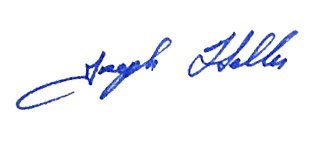 Joseph Heller